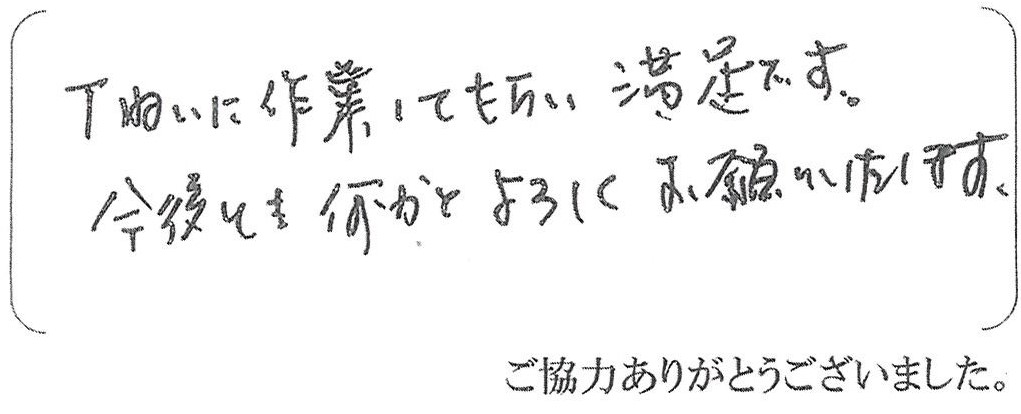 丁ねいに作業してもらい満足です。
今後とも何かとよろしくお願いいたします。
ご協力ありがとうございました。